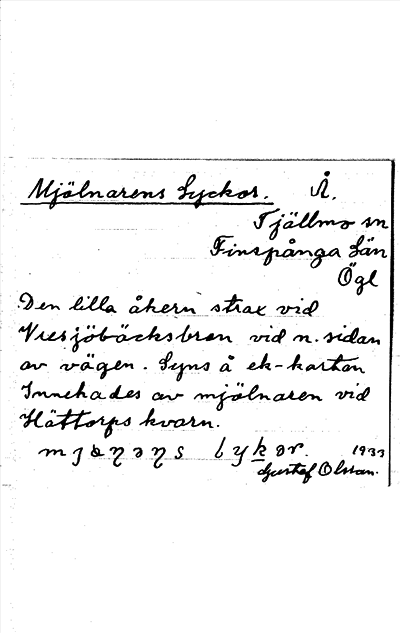 Mjölnarens Lyckor. Å.
Tjällmo sn
Finspånga län
Ögl
Den lilla åkern strax vid
Vresjöbäcksbron vid n. sidan
av vägen. Syns å ek-kartan
Innehades av mjölnaren vid
Hättorps kvarn.
lykər. 1933
Gustaf Olsson.